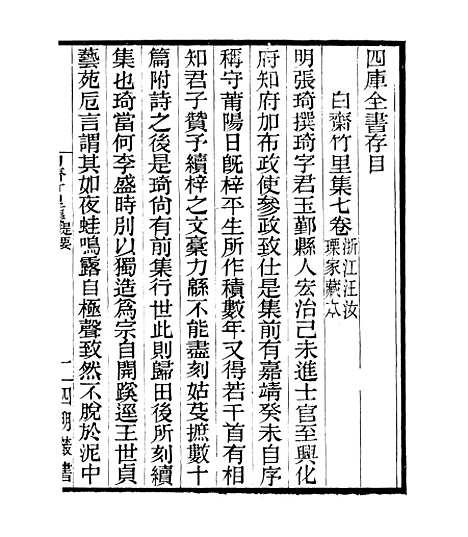 四庫全書存目
白齋竹里集七卷浙江汪汝
瑮家藏本
明張琦撰琦字君玉鄞縣人宏治己未進士官至興化
府知府加布政使參政致仕是集前有嘉靖癸未自序
稱守莆陽日旣梓平生所作積數年又得若干首有相
知君子贊子續梓之文槀力緜不能盡刻姑芟摭數十
篇附詩之後是琦尙有前集行世此則歸田後所刻續
集也琦當何李盛時別以獨造爲宗自開蹊逕王世貞
藝苑巵言謂其如夜蛙鳴露自極聲致然不脫於泥中
提要
一
四明叢書